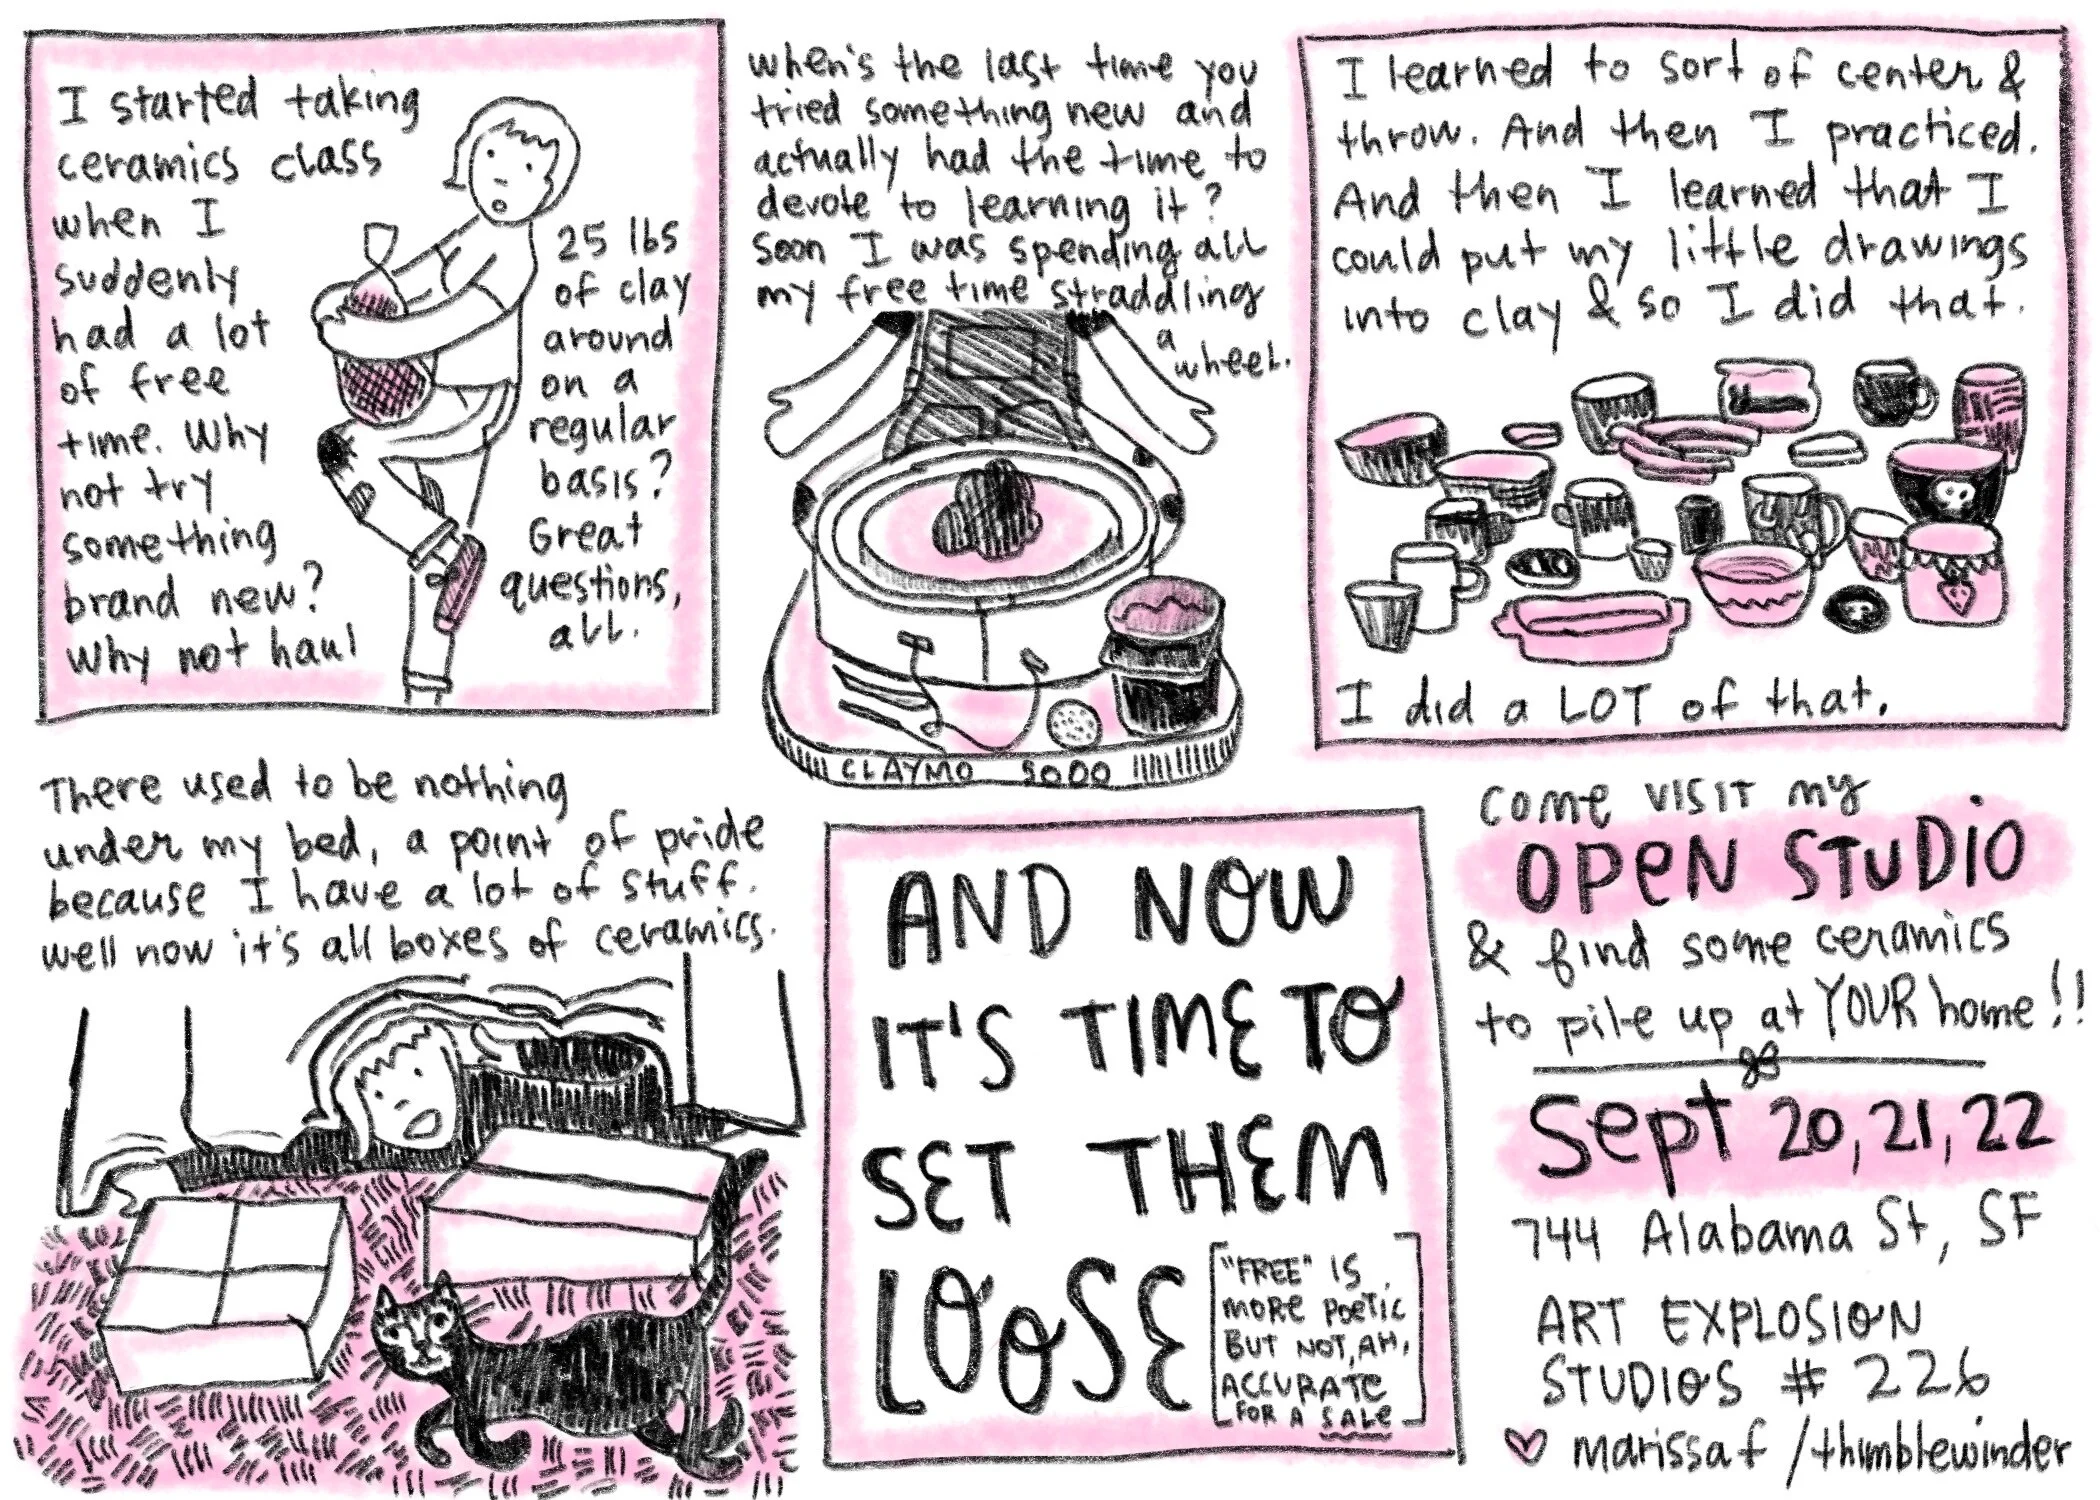 I started taking
ceramics class
when I
suddenly
had a lot
of free
time. Why
not try
something
brand new?
Why not haul
25 lbs
of clay
around
on a
regular
basis?
Great
questions,
all.
when's the last time you
tried something new and
actually had the time to
devote to learning it?
Soon I was spending all
my free time straddling
a
wheel.
CLAYMO 5000
I learned to sort of center &
throw. And then I practiced.
And then I learned that I
could put my little drawings
into clay & so I did that.
I did a LOT of that.
There used to be nothing
under my bed, a point of pride
because I have a lot of stuff.
well now it's all boxes of ceramics.
AND NOW
IT'S TIME TO
SET THEM
LOOSE
"FREE" IS
MORE POETIC
BUT NOT, AH,
ACCURATE
FOR A SALE
COME VISIT my
OPEN STUDIO
& find some ceramics
to pile up at YOUR home!!
Sept 20, 21, 22
744 Alabama St, SF
ART EXPLOSION
STUDIOS # 226
♡ marissa f / thimblewinder